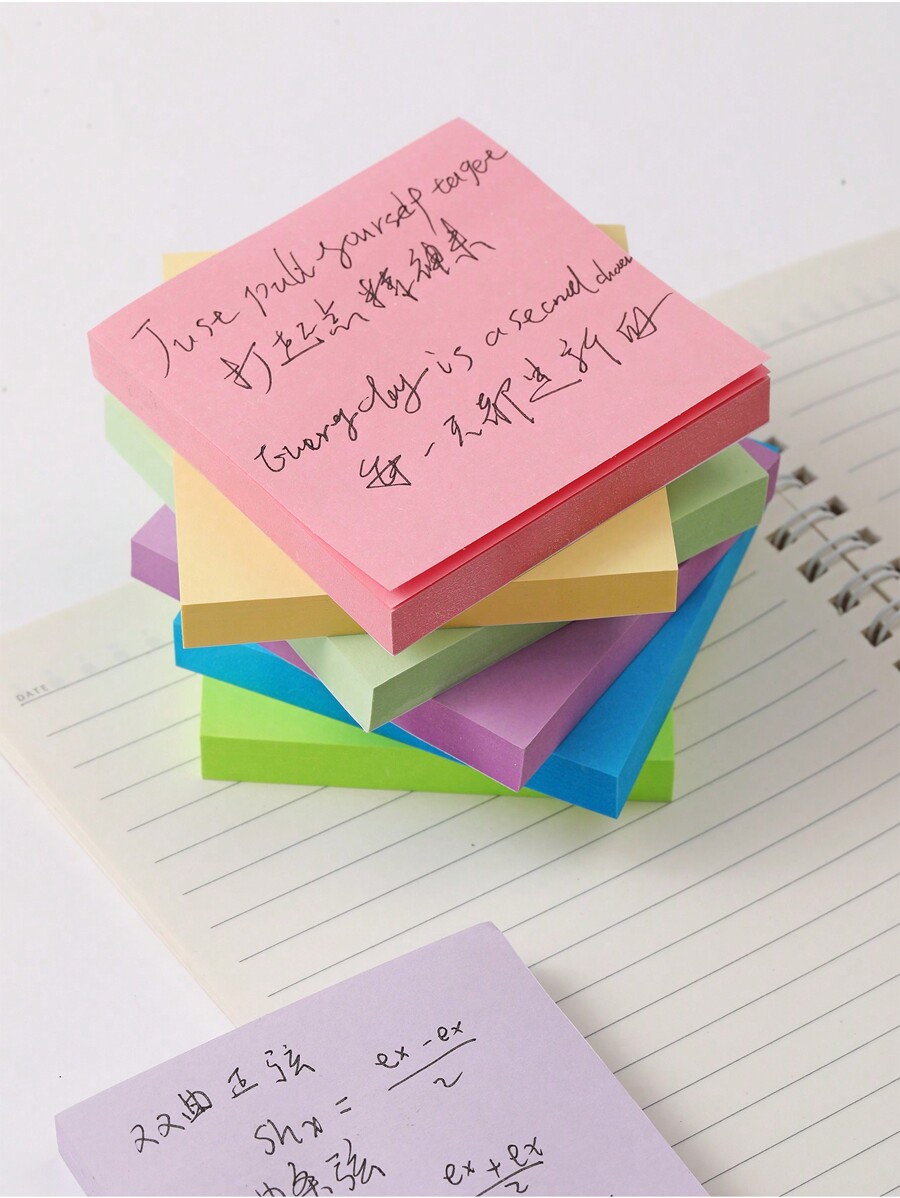 Juse pull yourself togee
打起点精神来
Every day is a second chan
每一天都是新的
DATE
双曲正弦
shx = ex - ex / 2
曲余弦
ex + ex / 2